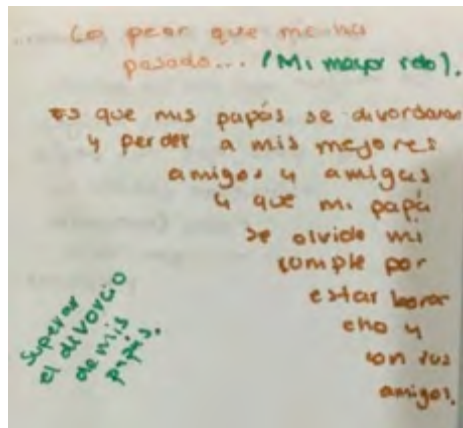 ... Lo peor que me ha
pasado... (Mi mayor reto).
es que mis papás se divorciaran
y perder a mis mejores
amigos y amigas
y que mi papá
se olvide mi
cumple por
estar borra
cho y
con sus
amigos.
Superar
el divorcio
de mis
papás.